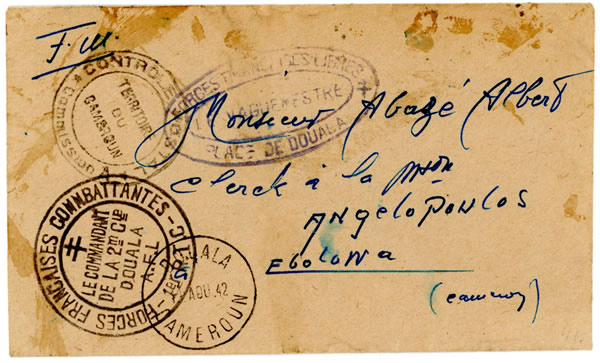 F.M.
COMMISSION CONTROLE
TERRITOIRE
DU
CAMEROUN
FORCES FRANÇAISES LIBRES
VAGUEMESTRE
PLACE DE DOUALA
Monsieur Abazé Albert
Clerck à la mson
ANgeloPoulos
EbolowA
(Cameroun)
FORCES FRANÇAISES COMMBATTANTES
LE COMMANDANT
DE LA 2me Cie
DOUALA
A.F.L
DOUALA
AOU.42
CAMEROUN